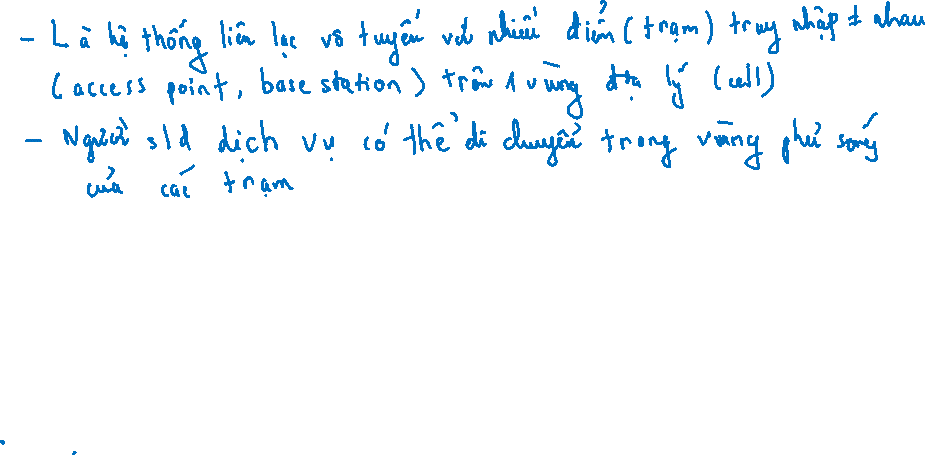 - Là hệ thống liên lạc vô tuyến với nhiều điểm (trạm) truy nhập ≠ nhau
(access point, base station) trên 1 vùng địa lý (cell)
- Người s/d dịch vụ có thể di chuyển trong vùng phủ sóng
của các trạm